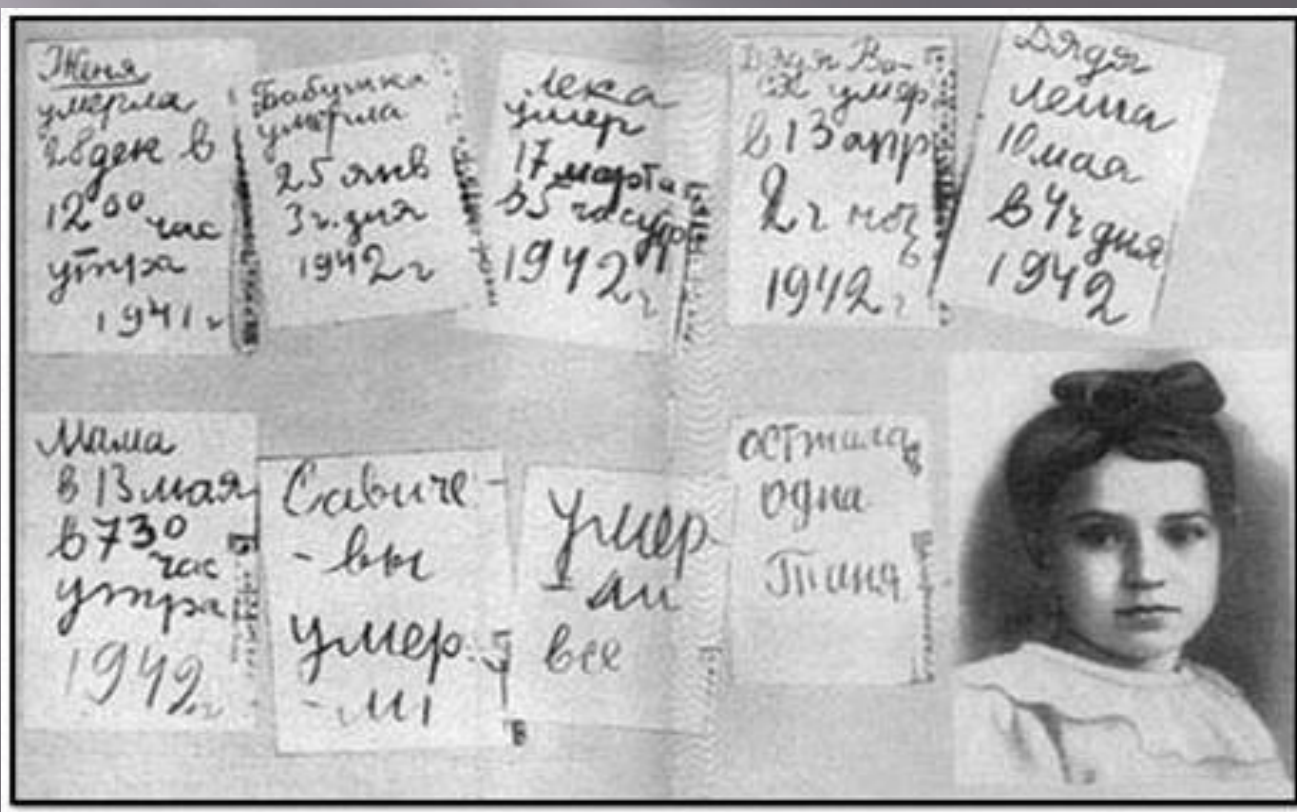 Женя
умерла
28 ден в
12 00 час
утра
1941 г
Бабушка
умерла
25 янв
3 ч. дня
1942 г
Лека
умер
17 марта
в 5 час утр
1942 г
Дядя Ва-
ся умер
в 13 апр
2 ч ноч
1942 г
Дядя
Леша
10 мая
в 4 ч дня
1942
Мама
в 13 мая
в 7 30
час
утра
1942 г
Савиче-
-вы
умер-
-ли
Умер-
-ли
все
осталась
одна
Таня